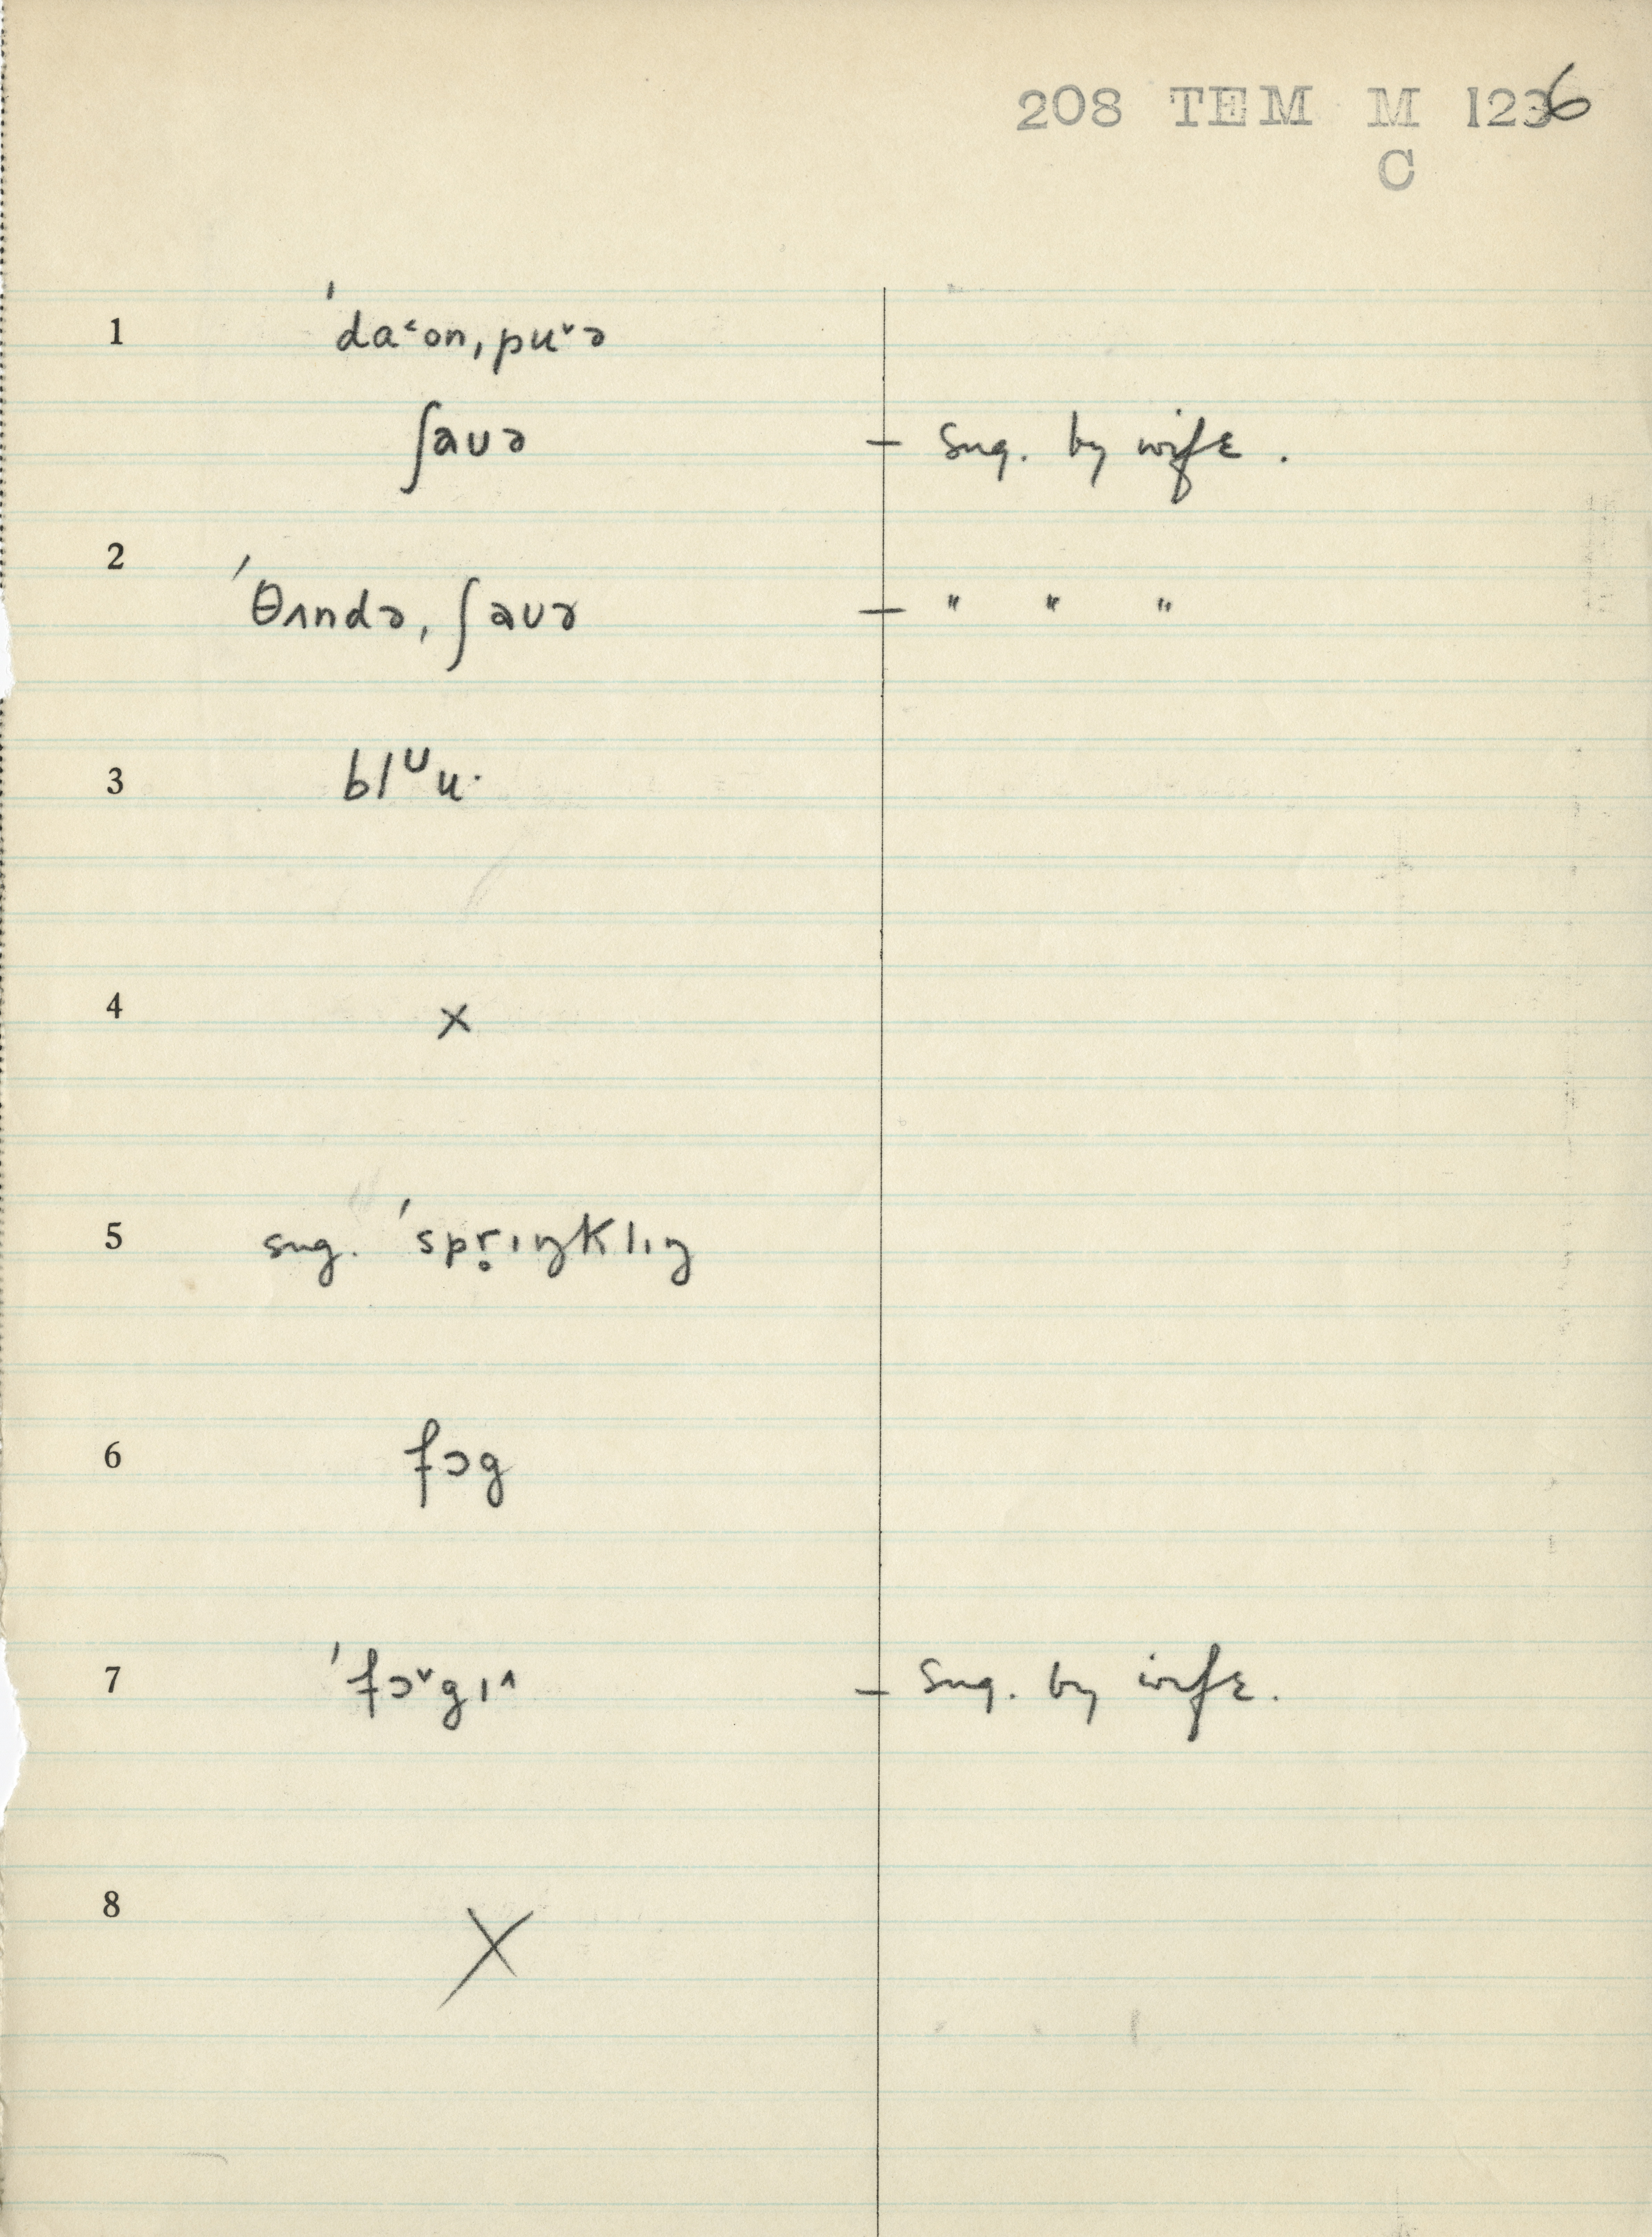 208 TEM M 1236
C
1 ˈda˂on, pu˅ə
ʃaʊə – Sug. by wife.
2 ˈθʌndə, ʃaʊə – " " "
3 blᶷu·
4 ×
5 sug. ˈspr̥ɪŋklɪŋ
6 fɔg
7 ˈfɔ˅gɪ˄ – Sug. by wife.
8 ×